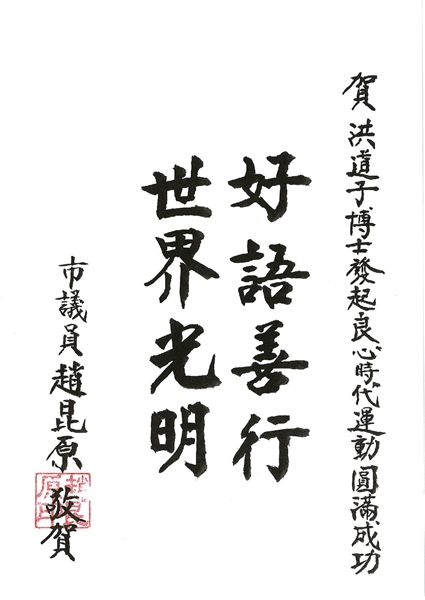 賀 洪道子博士發起良心時代運動圓滿成功
好語善行
世界光明
市議員趙昆原 敬賀